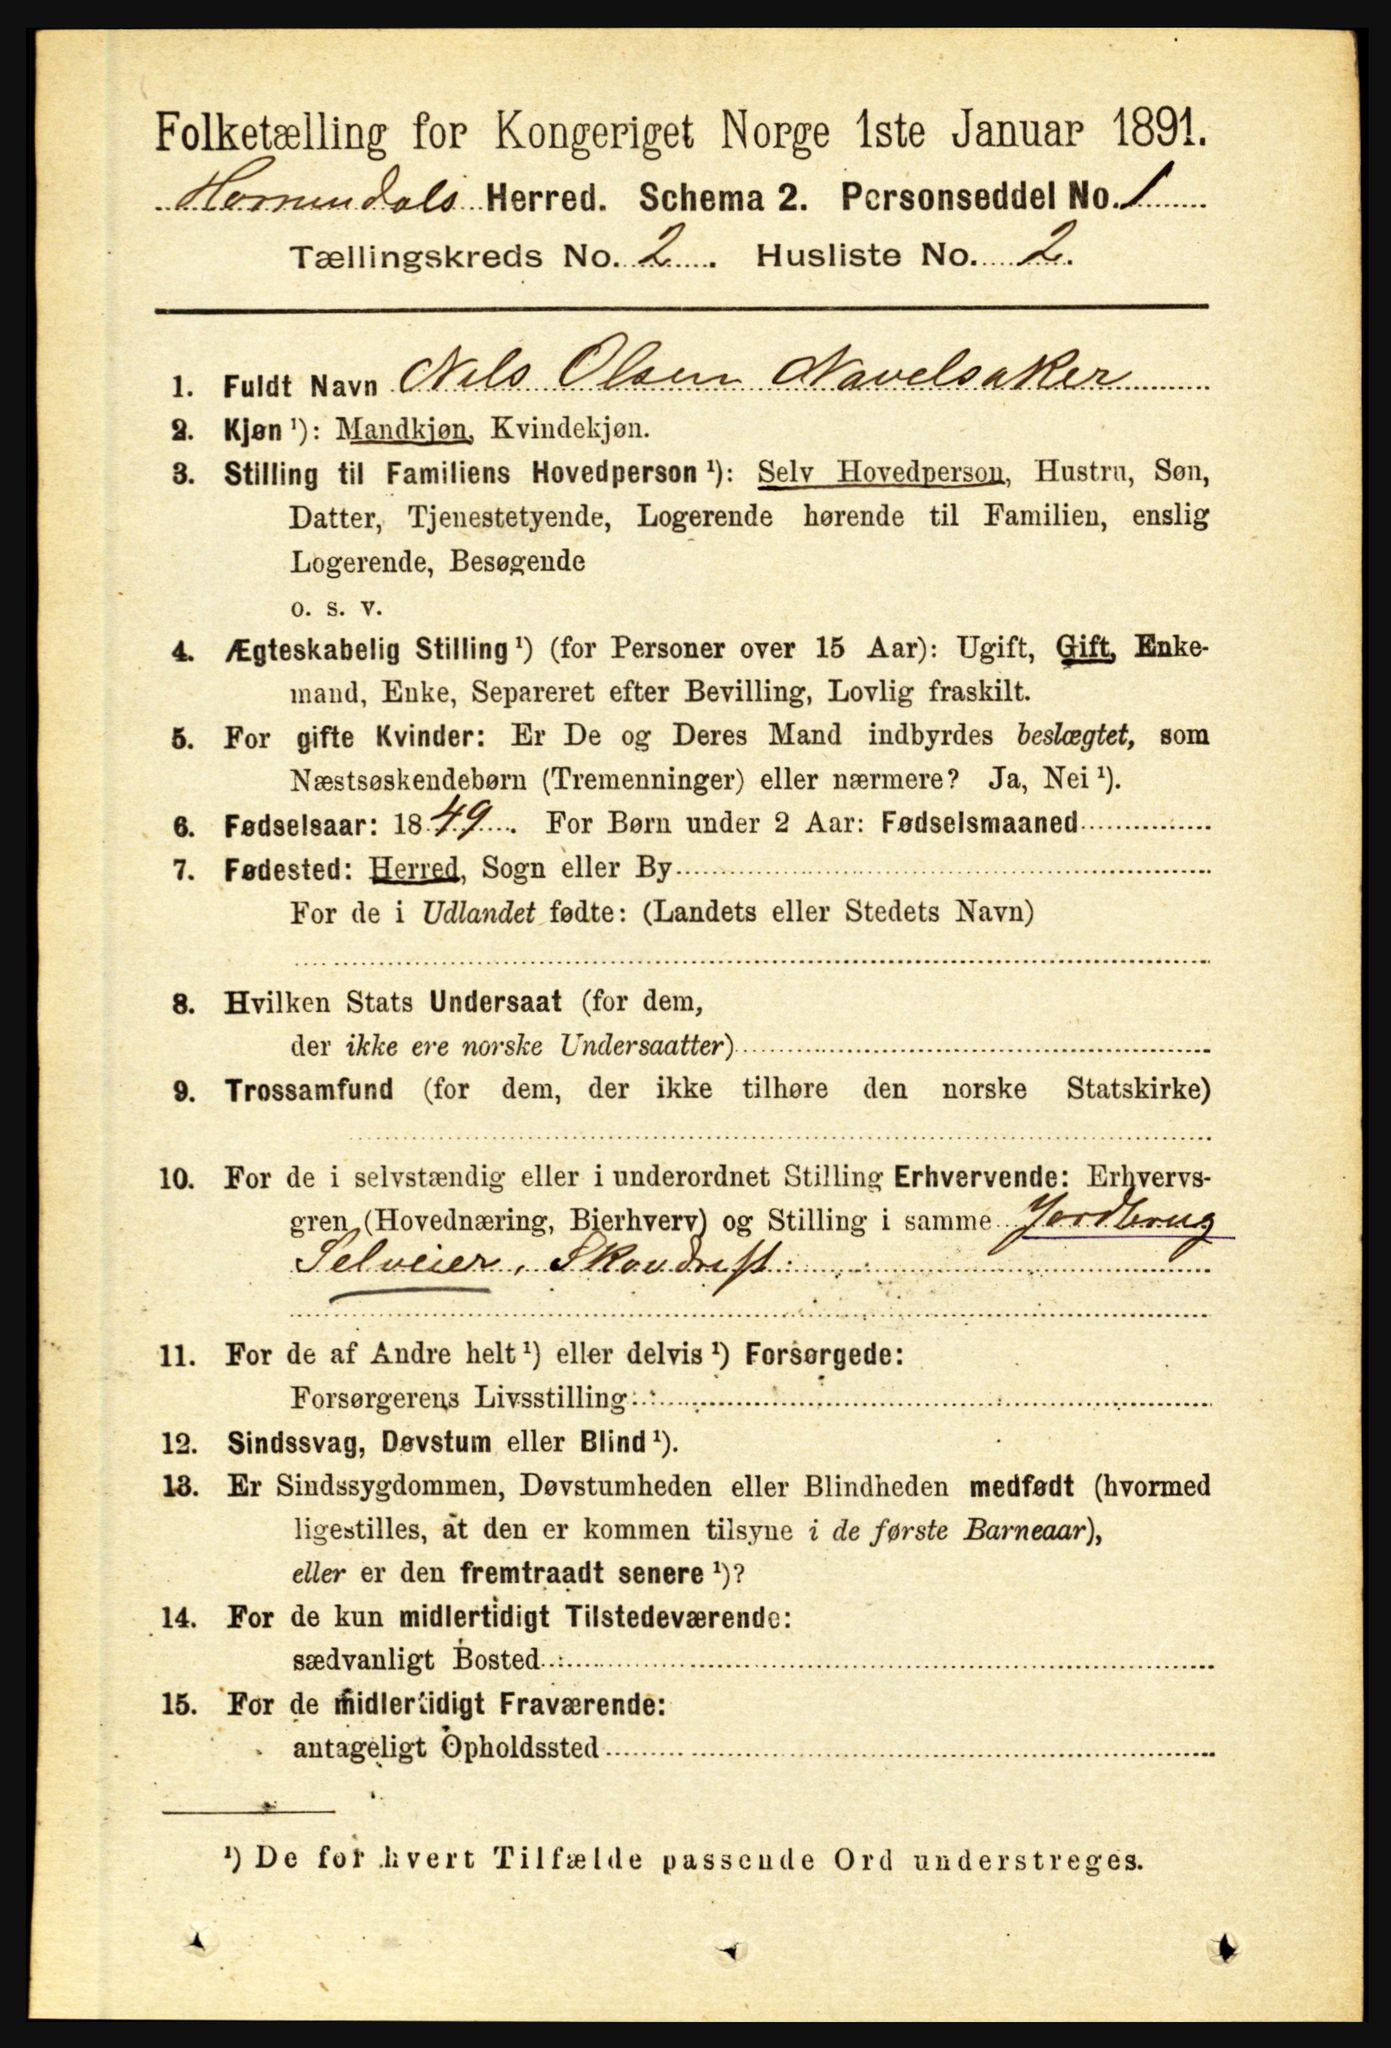 Folketælling for Kongeriget Norge 1ste Januar 1891.
Hornindals Herred. Schema 2. Personseddel No. 1
Tællingskreds No. 2. Husliste No. 2.
1. Fuldt Navn Nils Olsen Navelsaker
2. Kjøn ¹): Mandkjøn, Kvindekjøn.
3. Stilling til Familiens Hovedperson ¹): Selv Hovedperson, Hustru, Søn,
Datter, Tjenestetyende, Logerende hørende til Familien, enslig
Logerende, Besøgende
o. s. v.
4. Ægteskabelig Stilling ¹) (for Personer over 15 Aar): Ugift, Gift, Enke-
mand, Enke, Separeret efter Bevilling, Lovlig fraskilt.
5. For gifte Kvinder: Er De og Deres Mand indbyrdes beslægtet, som
Næstsøskendebørn (Tremenninger) eller nærmere? Ja, Nei ¹).
6. Fødselsaar: 1849. For Børn under 2 Aar: Fødselsmaaned
7. Fødested: Herred, Sogn eller By
For de i Udlandet fødte: (Landets eller Stedets Navn)
8. Hvilken Stats Undersaat (for dem,
der ikke ere norske Undersaatter)
9. Trossamfund (for dem, der ikke tilhøre den norske Statskirke)
10. For de i selvstændig eller i underordnet Stilling Erhvervende: Erhvervs-
gren (Hovednæring, Bierhverv) og Stilling i samme Jordbrug
Selveier, Skovdrift
11. For de af Andre helt ¹) eller delvis ¹) Forsørgede:
Forsørgerens Livsstilling
12. Sindssvag, Døvstum eller Blind ¹).
13. Er Sindssygdommen, Døvstumheden eller Blindheden medfødt (hvormed
ligestilles, at den er kommen tilsyne i de første Barneaar),
eller er den fremtraadt senere ¹)?
14. For de kun midlertidigt Tilstedeværende:
sædvanligt Bosted
15. For de midlertidigt Fraværende:
antageligt Opholdssted
¹) De for hvert Tilfælde passende Ord understreges.